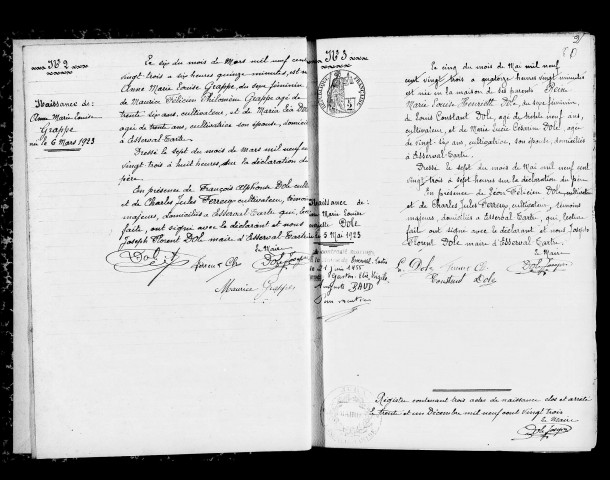 N° 2
Naissance de:
Anne Marie Louise
Grappe
né le 6 Mars 1923
Le six du mois de Mars mil neuf cent
vingt trois à six heures quinze minutes, est n
Anne Marie Louise Grappe, du sexe féminin,
de Maurice Félicien Philomen Grappe agé de
trente six ans, cultivateur, et de Maria Léa
agé de trente ans, cultivatrice son épouse, domicilié
à Esserval Tartre.
Dressé le sept du mois de mars mil neuf cen
vingt trois à huit heures, sur la déclaration du
père.
En présence de François Alphonse Dole culti
et de Charles Jules Perrecy cultivateur, témoins
majeurs, domiciliés à Esserval Tartre qui, lec
faite, ont signé avec le déclarant et nous
Joseph Florent Dole maire d'Esserval Tartre
Le Maire
Dole
Dole Joseph
Maurice Grappe
N° 3
Naissance de:
Marie Louise
Dole
le 5 Mai 1923
Esserval-Tartre
BAUD
Le cinq du mois de Mai mil neuf
cent vingt trois à quatorze heures vingt minutes
est née en la maison de ses parents
Marie Louise Henriette Dole, du sexe féminin,
de Louis Constant Dole, agé de trente neuf ans,
cultivateur, et de Marie Lucie Césarine Dole, agée
de vingt six ans, cultivatrice, son épouse, domiciliés
à Esserval Tartre.
Dressé le sept du mois de Mai mil neuf cent
vingt trois à sept heures sur la déclaration du père
En présence de Léon Félicien Dole, cultivateur
et de Charles Jules Perrecy, cultivateur, témoins
majeurs, domiciliés à Esserval Tartre, qui, lecture
faite ont signé avec le déclarant et nous Joseph
Florent Dole maire d'Esserval Tartre.
Le Maire
L. Dole
Dole Joseph
Constant Dole
Registre contenant trois actes de naissance clos et arreté
le trente et un Décembre mil neuf cent vingt trois
Le Maire
Dole Joseph